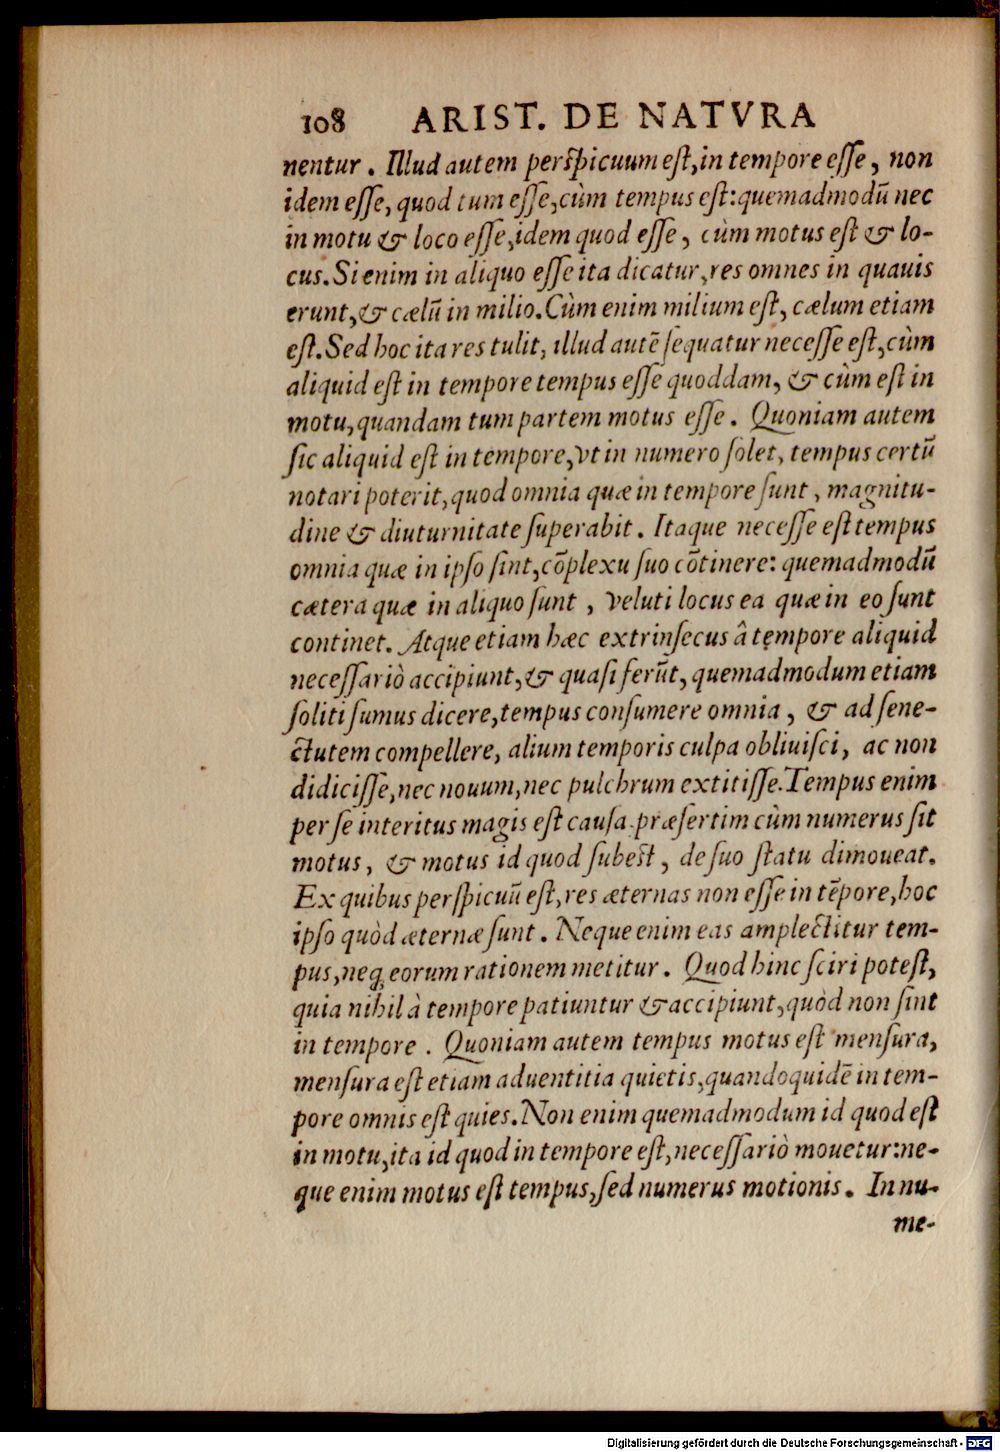 108 ARIST. DE NATVRA
nentur. Illud autem perſpicuum eſt, in tempore eſſe, non
idem eſſe, quod tum eſſe, cùm tempus eſt: quemadmodū nec
in motu & loco eſſe, idem quod eſſe, cùm motus eſt & lo-
cus. Si enim in aliquo eſſe ita dicatur, res omnes in quauis
erunt, & cælū in milio. Cùm enim milium eſt, cælum etiam
eſt. Sed hoc ita res tulit, illud autē ſequatur neceſſe eſt, cùm
aliquid eſt in tempore tempus eſſe quoddam, & cùm eſt in
motu, quandam tum partem motus eſſe. Quoniam autem
ſic aliquid eſt in tempore, vt in numero ſolet, tempus certū
notari poterit, quod omnia quæ in tempore ſunt, magnitu-
dine & diuturnitate ſuperabit. Itaque neceſſe eſt tempus
omnia quæ in ipſo ſint, cōplexu ſuo cōtinere: quemadmodū
cætera quæ in aliquo ſunt, veluti locus ea quæ in eo ſunt
continet. Atque etiam hæc extrinſecus â tempore aliquid
neceſſariò accipiunt, & quaſi ferūt, quemadmodum etiam
ſoliti ſumus dicere, tempus conſumere omnia, & ad ſene-
ctutem compellere, alium temporis culpa obliuiſci, ac non
didiciſſe, nec nouum, nec pulchrum extitiſſe. Tempus enim
per ſe interitus magis eſt cauſa præſertim cùm numerus ſit
motus, & motus id quod ſubeſt, de ſuo ſtatu dimoueat.
Ex quibus perſpicuū eſt, res æternas non eſſe in tēpore, hoc
ipſo quòd æternæ ſunt. Neque enim eas amplectitur tem-
pus, neq; eorum rationem metitur. Quod hinc ſciri poteſt,
quia nihil à tempore patiuntur & accipiunt, quòd non ſint
in tempore. Quoniam autem tempus motus eſt menſura,
menſura eſt etiam aduentitia quietis, quandoquidē in tem-
pore omnis eſt quies. Non enim quemadmodum id quod eſt
in motu, ita id quod in tempore eſt, neceſſariò mouetur: ne-
que enim motus eſt tempus, ſed numerus motionis. In nu-
me-
Digitalisierung gefördert durch die Deutsche Forschungsgemeinschaft - DFG